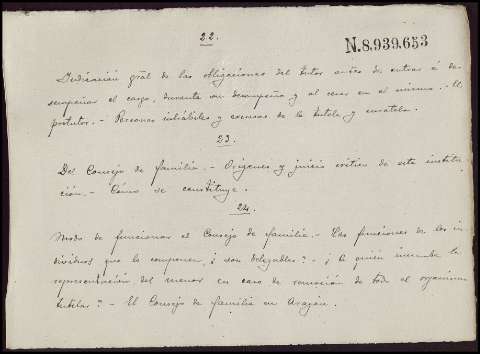 22.
N.8.939.653
Indicación gral de las obligaciones del tutor antes de entrar á de-
sempeñar el cargo, durante su desempeño y al cesar en el mismo. - El
protutor. - Personas inhábiles y excusas de la tutela y curatela.
23.
Del Consejo de familia. - Orígenes y juicio crítico de esta institu-
ción. - Cómo se constituye.
24.
Modo de funcionar el Consejo de familia. - Las funciones de los in-
dividuos que lo componen, ¿son delegables? - ¿A quién incumbe la
representación del menor en caso de remoción de todo el organismo
tutelar? - El Consejo de familia en Aragón.